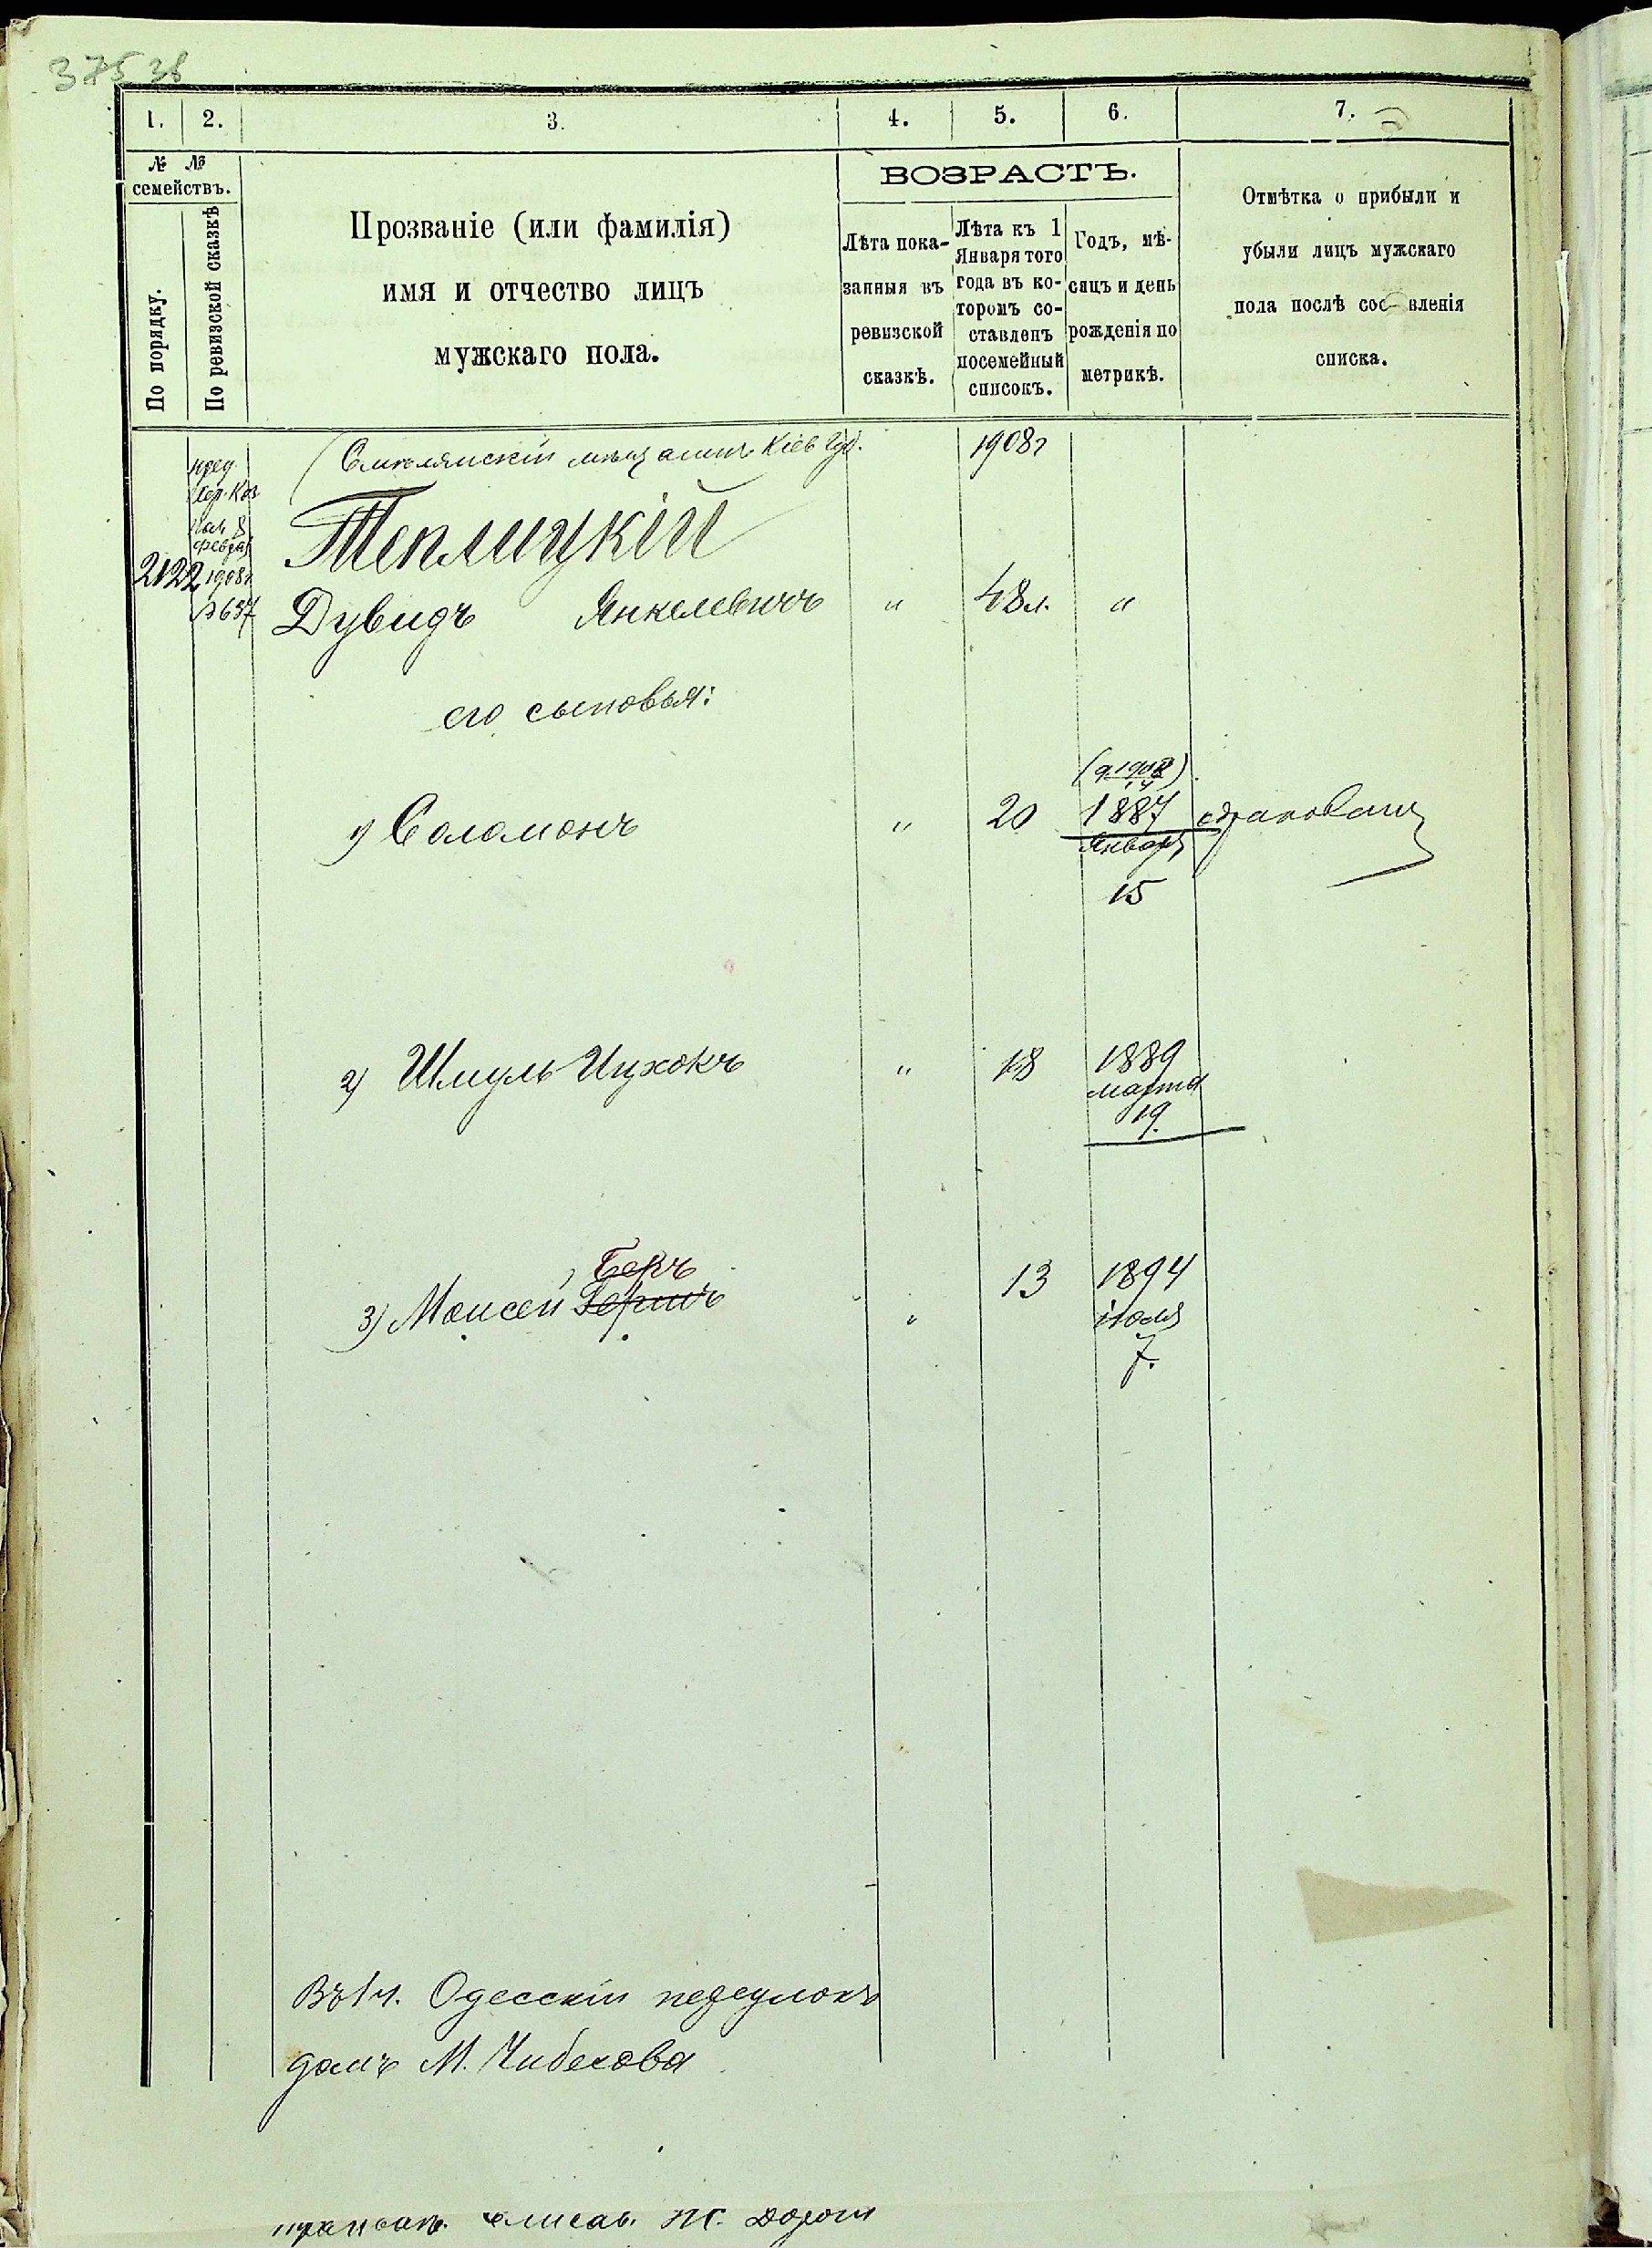 375 38
1. 2. 3. 4. 5. 6. 7.
№ № семействъ.
По порядку.
По ревизской сказкѣ
Прозваніе (или фамилія)
имя и отчество лицъ
мужскаго пола.
ВОЗРАСТЪ.
Лѣта пока-
занныя въ
ревизской
сказкѣ.
Лѣта къ 1
Января того
года въ ко-
торомъ со-
ставленъ
посемейный
списокъ.
Годъ, мѣ-
сяцъ и день
рожденія по
метрикѣ.
Отмѣтка о прибыли и
убыли лицъ мужскаго
пола послѣ сос вленія
списка.
пред.
Хер. Каз
Пал 8
феврал
1908г
№ 637
2122
(Смѣлянскій мѣщанинъ Кіев Губ. 1908г
Теплицкій
Дувидъ Янкелевичъ " 48 л. "
его сыновья:
1) Соломонъ " 20 1887
Январ
15
2) Шмуль Ицхокъ " 18 1889
марта
19.
Беръ
3) Моисей Гершъ " 13 1894
іюля
7.
Въ 1 ч. Одесскій переулокъ
домъ М.
Елисав. ж. дороги